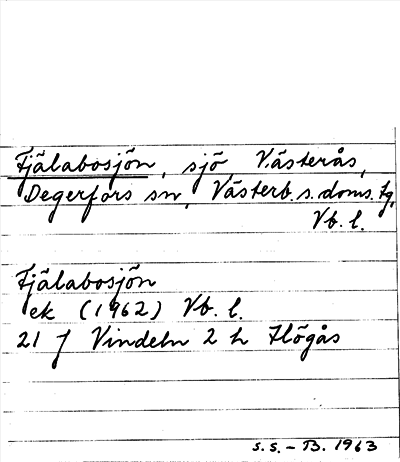 Fjälabosjön, sjö, Västerås,
Degerfors sn, Västerb. s. doms. tg,
Vb. l.
Fjälabosjön
ek (1962) Vb. l.
21 J Vindeln 2 h Högås
S.S. - B. 1963